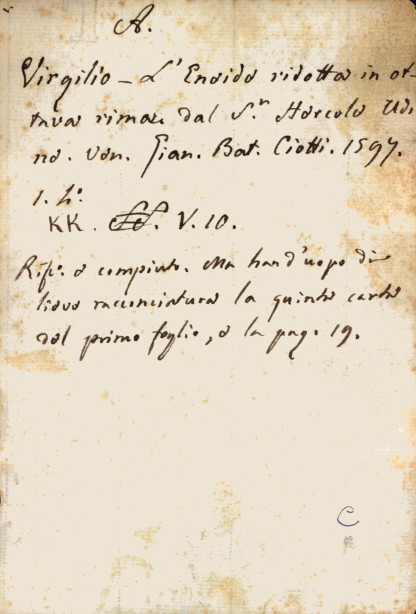 A.
Virgilio – L'Eneide ridotta in ot-
tava rima dal S.r Hercole Udi
ne. Ven. Gian. Bat. Ciotti. 1597.
1. 4º.
KK. V. 10.
e compiuto. Ma han d'uopo di
lieve racconciatura la quinta carta
del primo foglio, e la pag. 19.
C